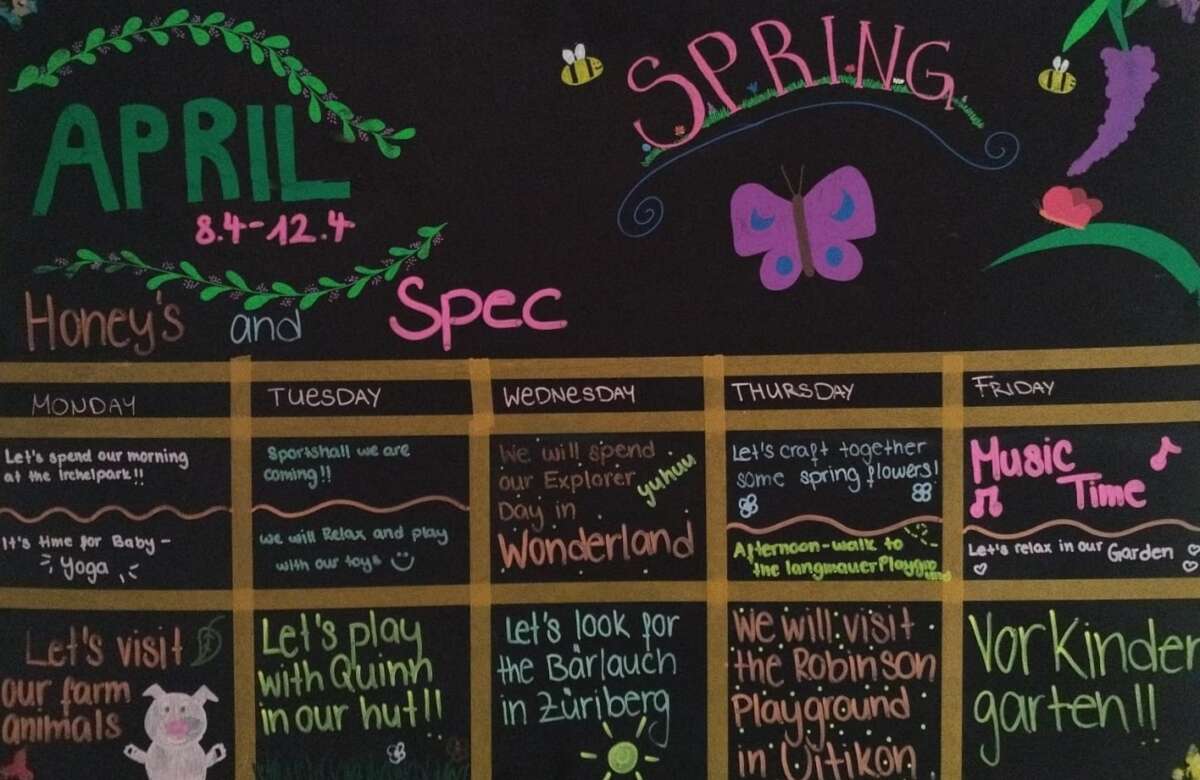 APRIL
8.4-12.4
SPRING
Honey's and Spec
MONDAY
TUESDAY
WEDNESDAY
THURSDAY
FRIDAY
Let's spend our morning
at the Irchelpark!!
It's time for Baby-
Yoga
Sportshall we are
coming!!
we will Relax and play
with our toys
We will spend
our Explorer
Day in
Wonderland
yuhuu
Let's craft together
some spring flowers!
Afternoon-walk to
the langmauerPlayground
Music
Time
Let's relax in our Garden
Let's visit
our farm
animals
Let's play
with Quinn
in our hut!!
Let's look for
the Bärlauch
in Züriberg
We will visit
the Robinson
Playground
in Uitikon
VorKinder
garten!!